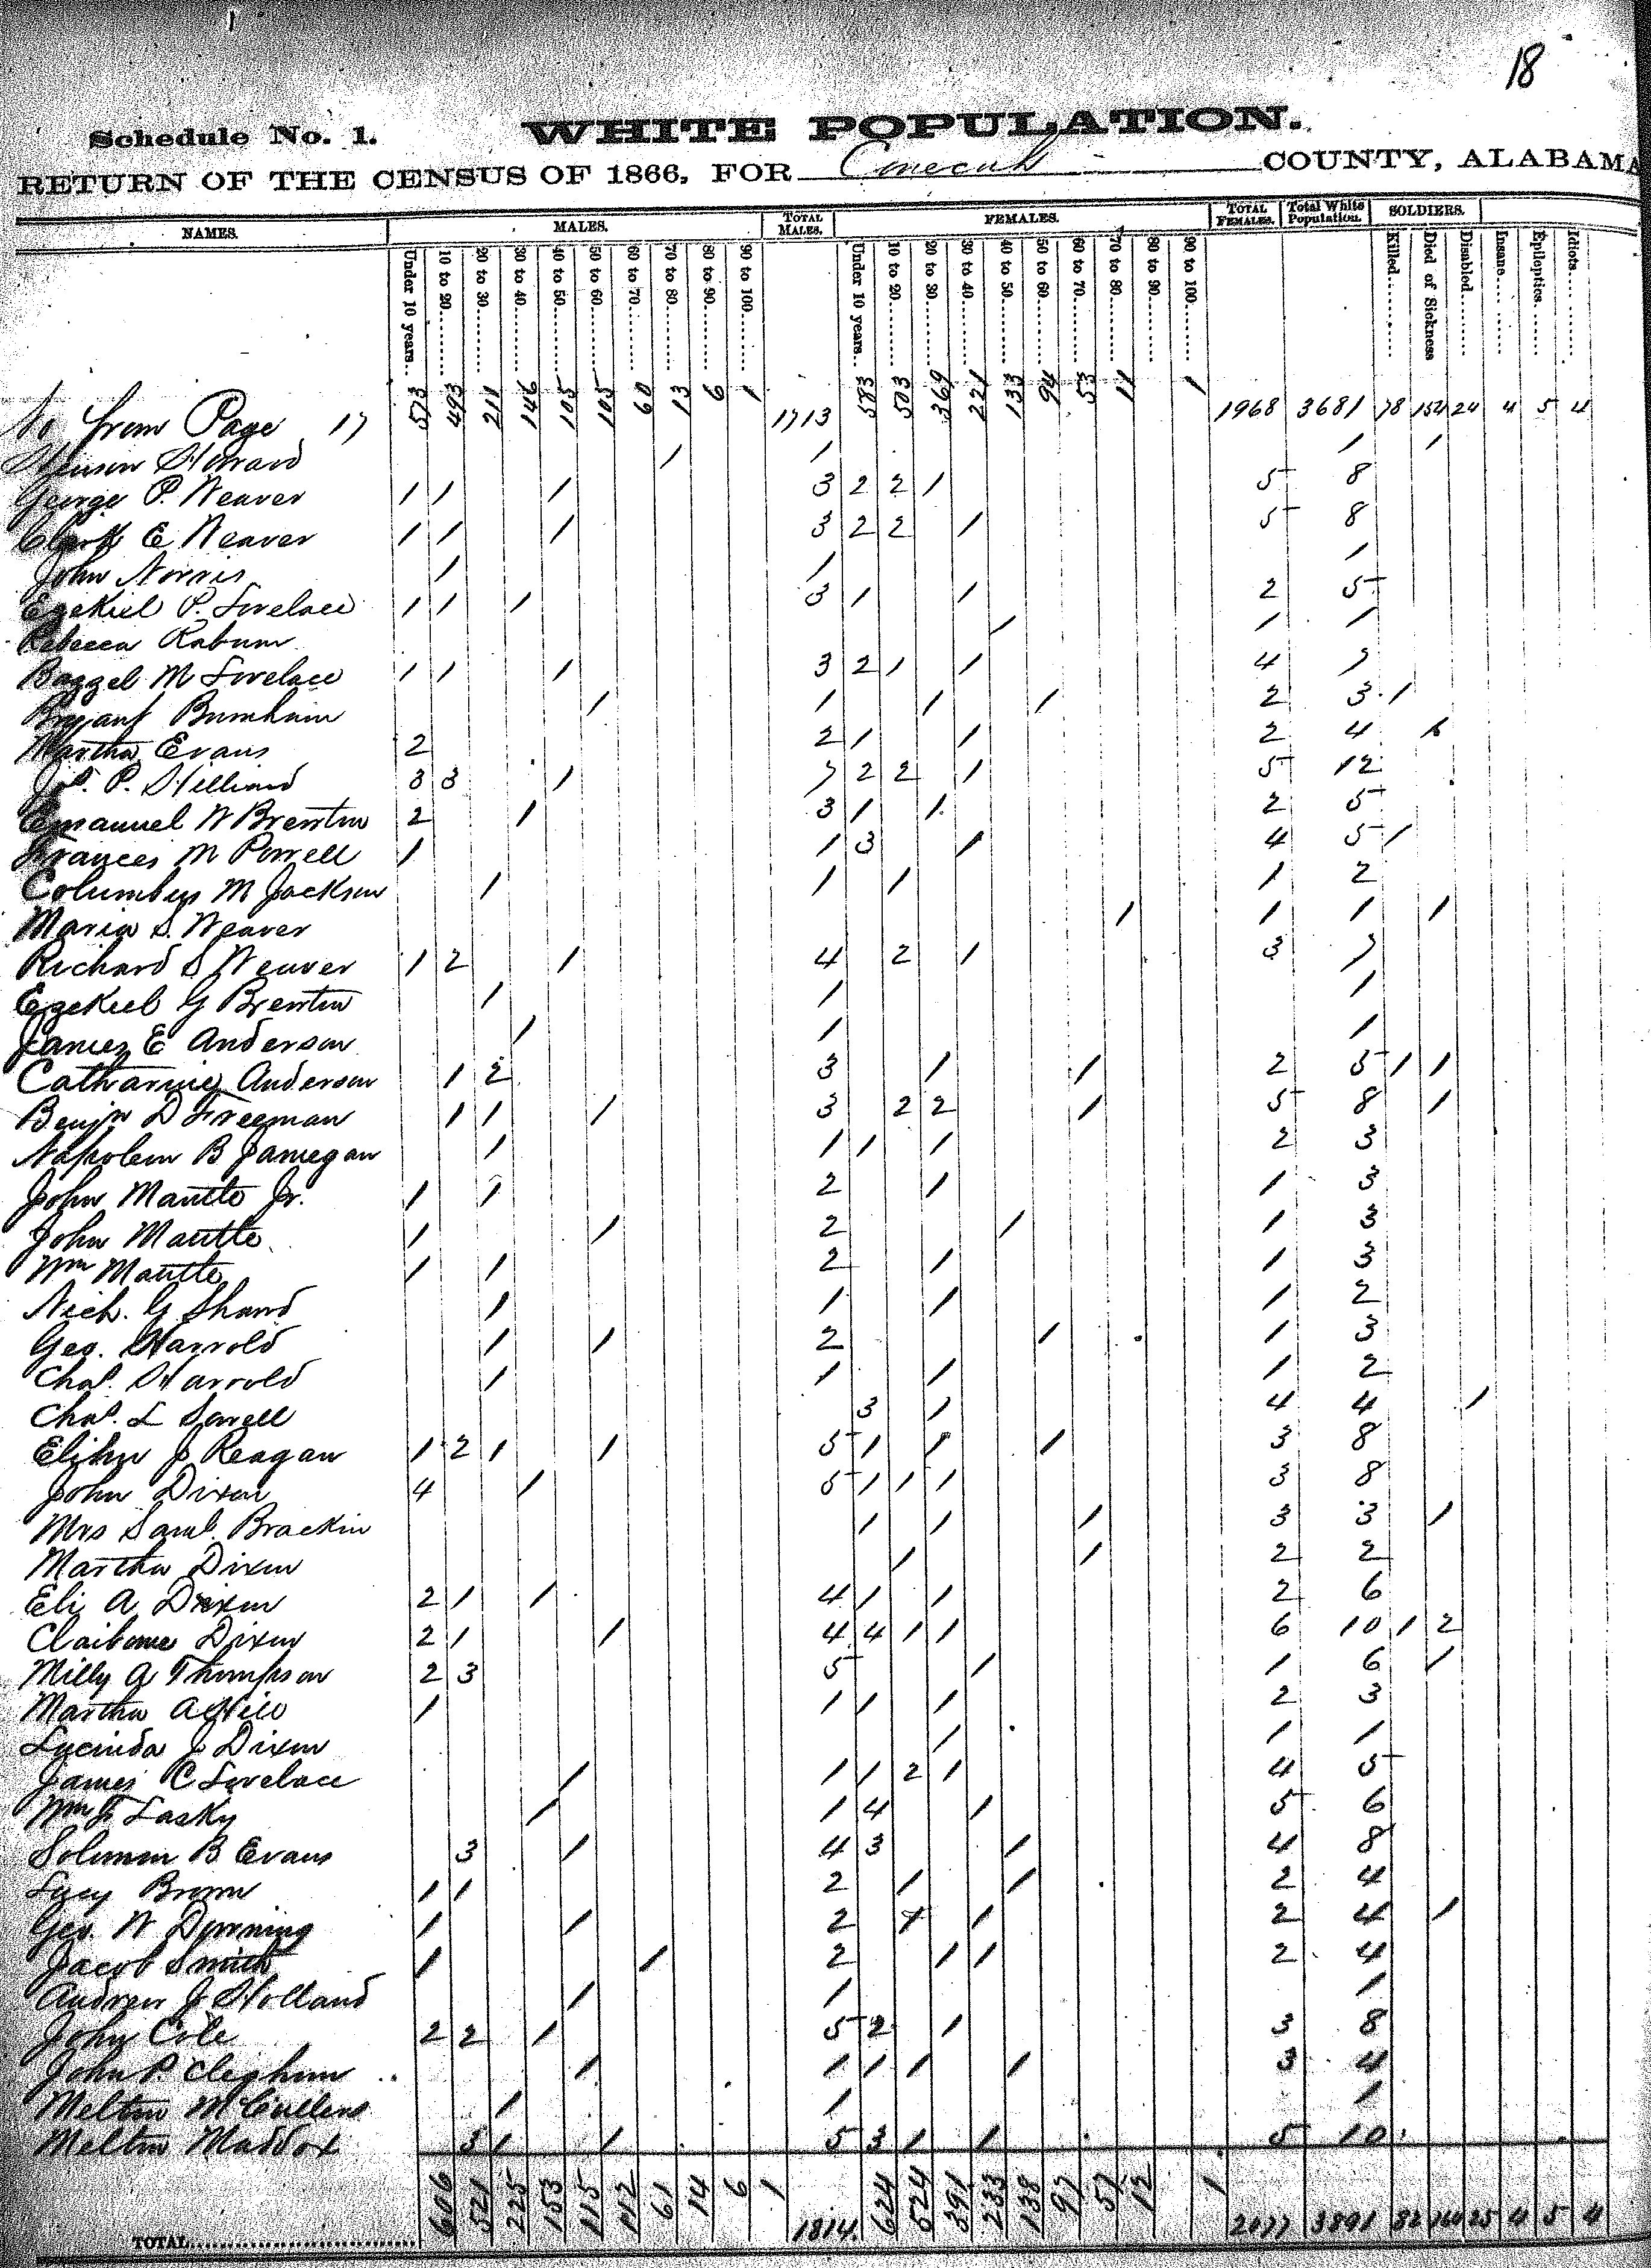 18
Schedule No. 1. WHITE POPULATION.
RETURN OF THE CENSUS OF 1866, FOR Conecuh COUNTY, ALABAMA
NAMES. MALES. TOTAL MALES. FEMALES. TOTAL FEMALES. Total White Population. SOLDIERS.
Under 10 years. 10 to 20. 20 to 30. 30 to 40. 40 to 50. 50 to 60. 60 to 70. 70 to 80. 80 to 90. 90 to 100. Under 10 years. 10 to 20. 20 to 30. 30 to 40. 40 to 50. 50 to 60. 60 to 70. 70 to 80. 80 to 90. 90 to 100. Killed. Died of Sickness Disabled. Insane. Epileptics. Idiots.
from Page 17 573 493 211 146 105 105 60 13 6 1 1713 583 503 369 221 133 94 53 11 1 1968 3681 78 154 24 4 5 4
Howard 1 1 1 1
George P. Weaver 1 1 1 3 2 2 1 5 8
Clark E Weaver 1 1 1 3 2 2 1 5 8
John Norris 1 1 1
Ezekiel P. Lovelace 1 1 1 3 1 1 2 5
Rebecca Rabum 1 1 1
Baggel M Lovelace 1 1 1 3 2 1 1 4 7
Bryant Burnham 1 1 1 1 2 3 1
Martha Evans 2 2 1 1 2 4
Jas. P. Hilliard 3 3 1 7 2 2 1 5 12
Emanuel W Brewton 2 1 3 1 1 2 5
Frances M Powell 1 1 3 1 4 5 1
Columbus M Jackson 1 1 1 1 2
Maria S. Weaver 1 1 1 1
Richard S Weaver 1 2 1 4 2 1 3 7
Ezekiel G Brewton 1 1 1
James E Anderson 1 1 1
Catharine Anderson 1 2 3 1 1 2 5 1 1
Benjn D Freeman 1 1 1 3 2 2 1 5 8 1
Napoleon B Jamegan 1 1 1 1 2 3
John Mantle Jr. 1 1 2 1 1 3
John Mantle 1 1 2 1 1 3
Wm Mantle 1 1 2 1 1 3
Nich. G Shaw 1 1 1 1 2
Geo. Harrold 1 1 2 1 1 3
Chas. Harrold 1 1 1 1 2
Chas. L Sowell 3 1 4 4 1
Elihu J Reagan 1 2 1 1 5 1 1 1 3 8
John Dixon 4 1 5 1 1 1 3 8
Mrs Saml. Brackin 1 1 1 3 3 1
Martha Dixon 1 1 2 2
Eli A Dixon 2 1 1 4 1 1 2 6
Claiborne Dixon 2 1 1 4 4 1 1 6 10 1 2
Milly A Thompson 2 3 5 1 1 6 1
Martha A Hill 1 1 1 1 2 3
Lucinda J Dixon 1 1 1
James C Lovelace 1 1 1 2 1 4 5
Wm J Lasky 1 1 4 1 5 6
Solomon B Evans 3 1 4 3 1 4 8
Lucy Brown 1 1 2 1 1 2 4
Geo. W Downing 1 1 2 1 1 2 4 1
Jacob Smith 1 1 2 1 1 2 4
Andrew J Holland 1 1 1
John Cole 2 2 1 5 2 1 3 8
John P. Cleghorn 1 1 1 1 1 3 4
Melton McCullens 1 1 1
Melton Maddox 3 1 1 5 3 1 1 5 10
TOTAL 606 521 225 153 115 112 61 14 6 1 1814 624 524 391 233 138 97 57 12 1 2077 3891 82 164 25 4 5 4